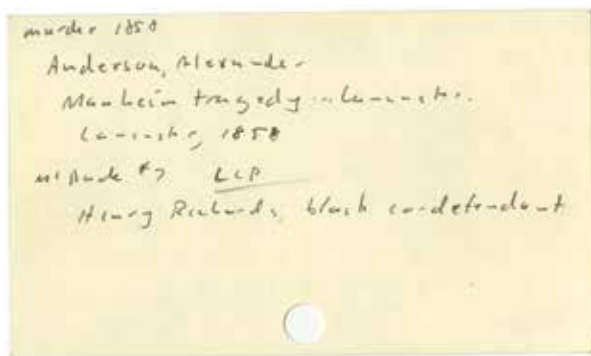 murder 1858
Anderson, Alexander
Manheim tragedy
Lancaster, 1858
McDade #7 LCP
Henry Richards, black co-defendant